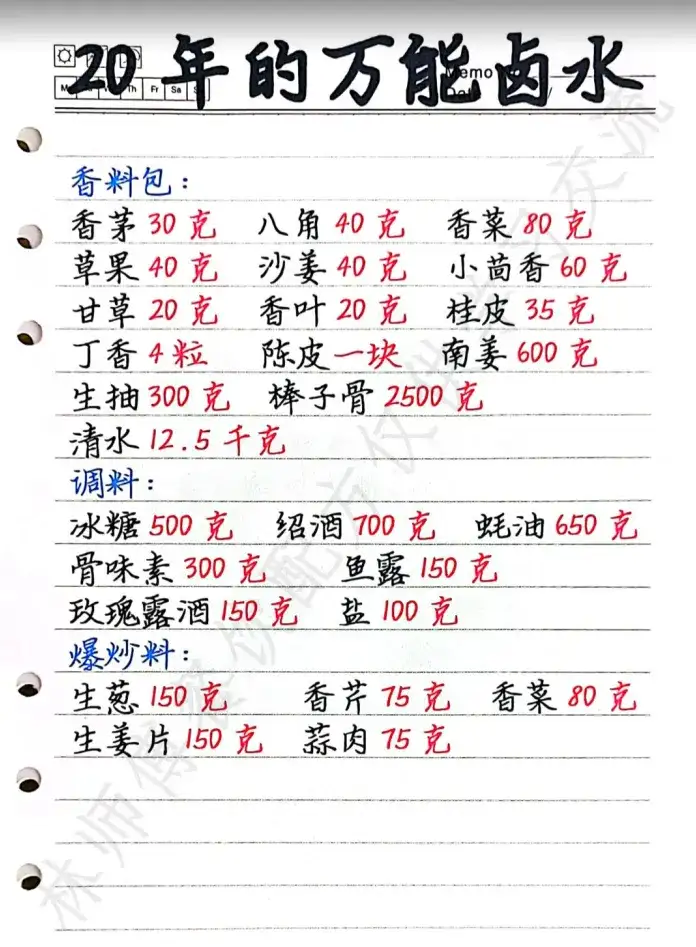 20年的万能卤水
Memo No.
Mo Th Fr Sa
香料包：
香茅 30 克 八角 40 克 香菜 80 克
草果 40 克 沙姜 40 克 小茴香 60 克
甘草 20 克 香叶 20 克 桂皮 35 克
丁香 4 粒 陈皮 一块 南姜 600 克
生抽 300 克 棒子骨 2500 克
清水 12.5 千克
调料：
冰糖 500 克 绍酒 700 克 蚝油 650 克
骨味素 300 克 鱼露 150 克
玫瑰露酒 150 克 盐 100 克
爆炒料：
生葱 150 克 香芹 75 克 香菜 80 克
生姜片 150 克 蒜肉 75 克
林师傅餐饮配方仅供学习交流